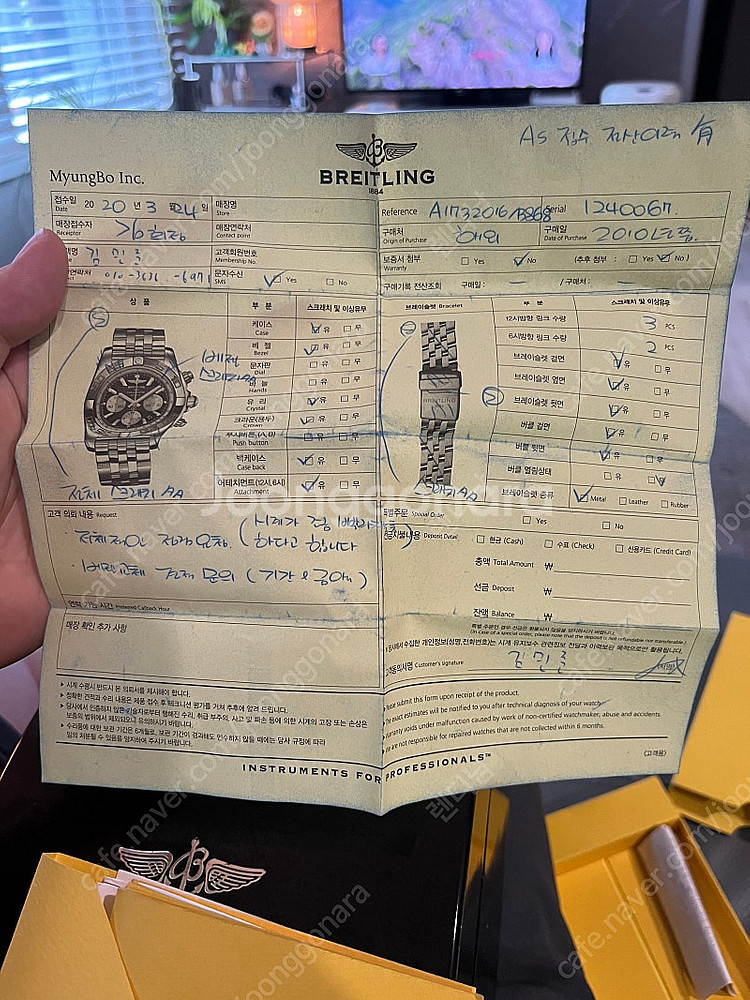 AS 접수 전산이력 有
MyungBo Inc.
BREITLING
1884
접수일 Date 2020년 3월 24일
매장명 Store
Reference A1732016/B868 Serial 1240067.
매장접수자 Receptor
매장연락처 Contact point
구매처 Origin of Purchase 해외
구매일 Date of Purchase 2010년쯤.
김민준
고객회원번호 Membership No.
보증서 첨부 Warranty □ Yes ☑ No (추후 첨부 : □ Yes ☑ No)
010-3631-6971
문자수신 SMS ☑ Yes □ No
구매기록 전산조회 구매일 : — / 구매처 : —
상 품
부 분
스크래치 및 이상유무
케이스 Case ☑ 유 □ 무
베 젤 Bezel ☑ 유 □ 무
문자판 Dial □ 유 □ 무
바 늘 Hands □ 유 □ 무
유 리 Crystal ☑ 유 □ 무
크라운(용두) Crown ☑ 유 □ 무
푸시버튼(A,B) Push button □ 유 □ 무
백케이스 Case back ☑ 유 □ 무
어태치먼트(12시,6시) Attachment ☑ 유 □ 무
베젤
스크래치
전체 스크래치
브레이슬렛 Bracelet
부 분
스크래치 및 이상유무
12시방향 링크 수량 3 PCS
6시방향 링크 수량 2 PCS
브레이슬렛 겉면 ☑ 유 □ 무
브레이슬렛 옆면 ☑ 유 □ 무
브레이슬렛 뒷면 ☑ 유 □ 무
버클 겉면 ☑ 유 □ 무
버클 뒷면 ☑ 유 □ 무
버클 열림상태 □ 유 ☑ 무
브레이슬렛 종류 ☑ Metal □ Leather □ Rubber
BREITLING
고객 의뢰 내용 Request
전체적인 점검요청. (시계가 점
하다고 합니다
· 버젤교체 견적 문의 (기간 & 금액)
연락 가능 시간 Preferred Callback Hour
특별주문 Special Order □ Yes □ No
Deposit Detail □ 현금 (Cash) □ 수표 (Check) □ 신용카드 (Credit Card)
총액 Total Amount ₩
선금 Deposit ₩
잔액 Balance ₩
특별 주문인 경우 선금은 환불되지 않음을 양지하시기 바랍니다.
(In case of a special order, please note that the deposit is not refundable nor transferable)
매장 확인 추가 사항
당사에서 수집한 개인정보(성명,전화번호)는 시계 유지보수 관련정보 전달과 이력보관 목적으로만 활용됩니다.
고객동의서명 Customer's signature 김민준
▶ 시계 수령시 반드시 본 의뢰서를 제시해야 합니다.
▶ 정확한 견적과 수리 내용은 제품 접수 후 테크니션 평가를 거쳐 추후에 알려 드립니다.
▶ 당사에서 인증하지 않은 수리점으로부터 행해진 수리, 취급 부주의, 사고 및 파손 등에 의한 시계의 고장 또는 손상은
보증의 범위에서 제외되오니 유의하시기 바랍니다.
▶ 수리품에 대한 보관 기간은 6개월로, 보관 기간이 경과해도 인수하지 않을 때에는 당사 규정에 따라
임의 처분될 수 있음을 양지하여 주시기 바랍니다.
Please submit this form upon receipt of the product.
The exact estimates will be notified to you after technical diagnosis of your watch.
Warranty voids under malfunction caused by work of non-certified watchmaker, abuse and accidents.
We are not responsible for repaired watches that are not collected within 6 months.
(고객용)
INSTRUMENTS FOR PROFESSIONALS™
Joonggonara
cafe.naver.com/joonggonara